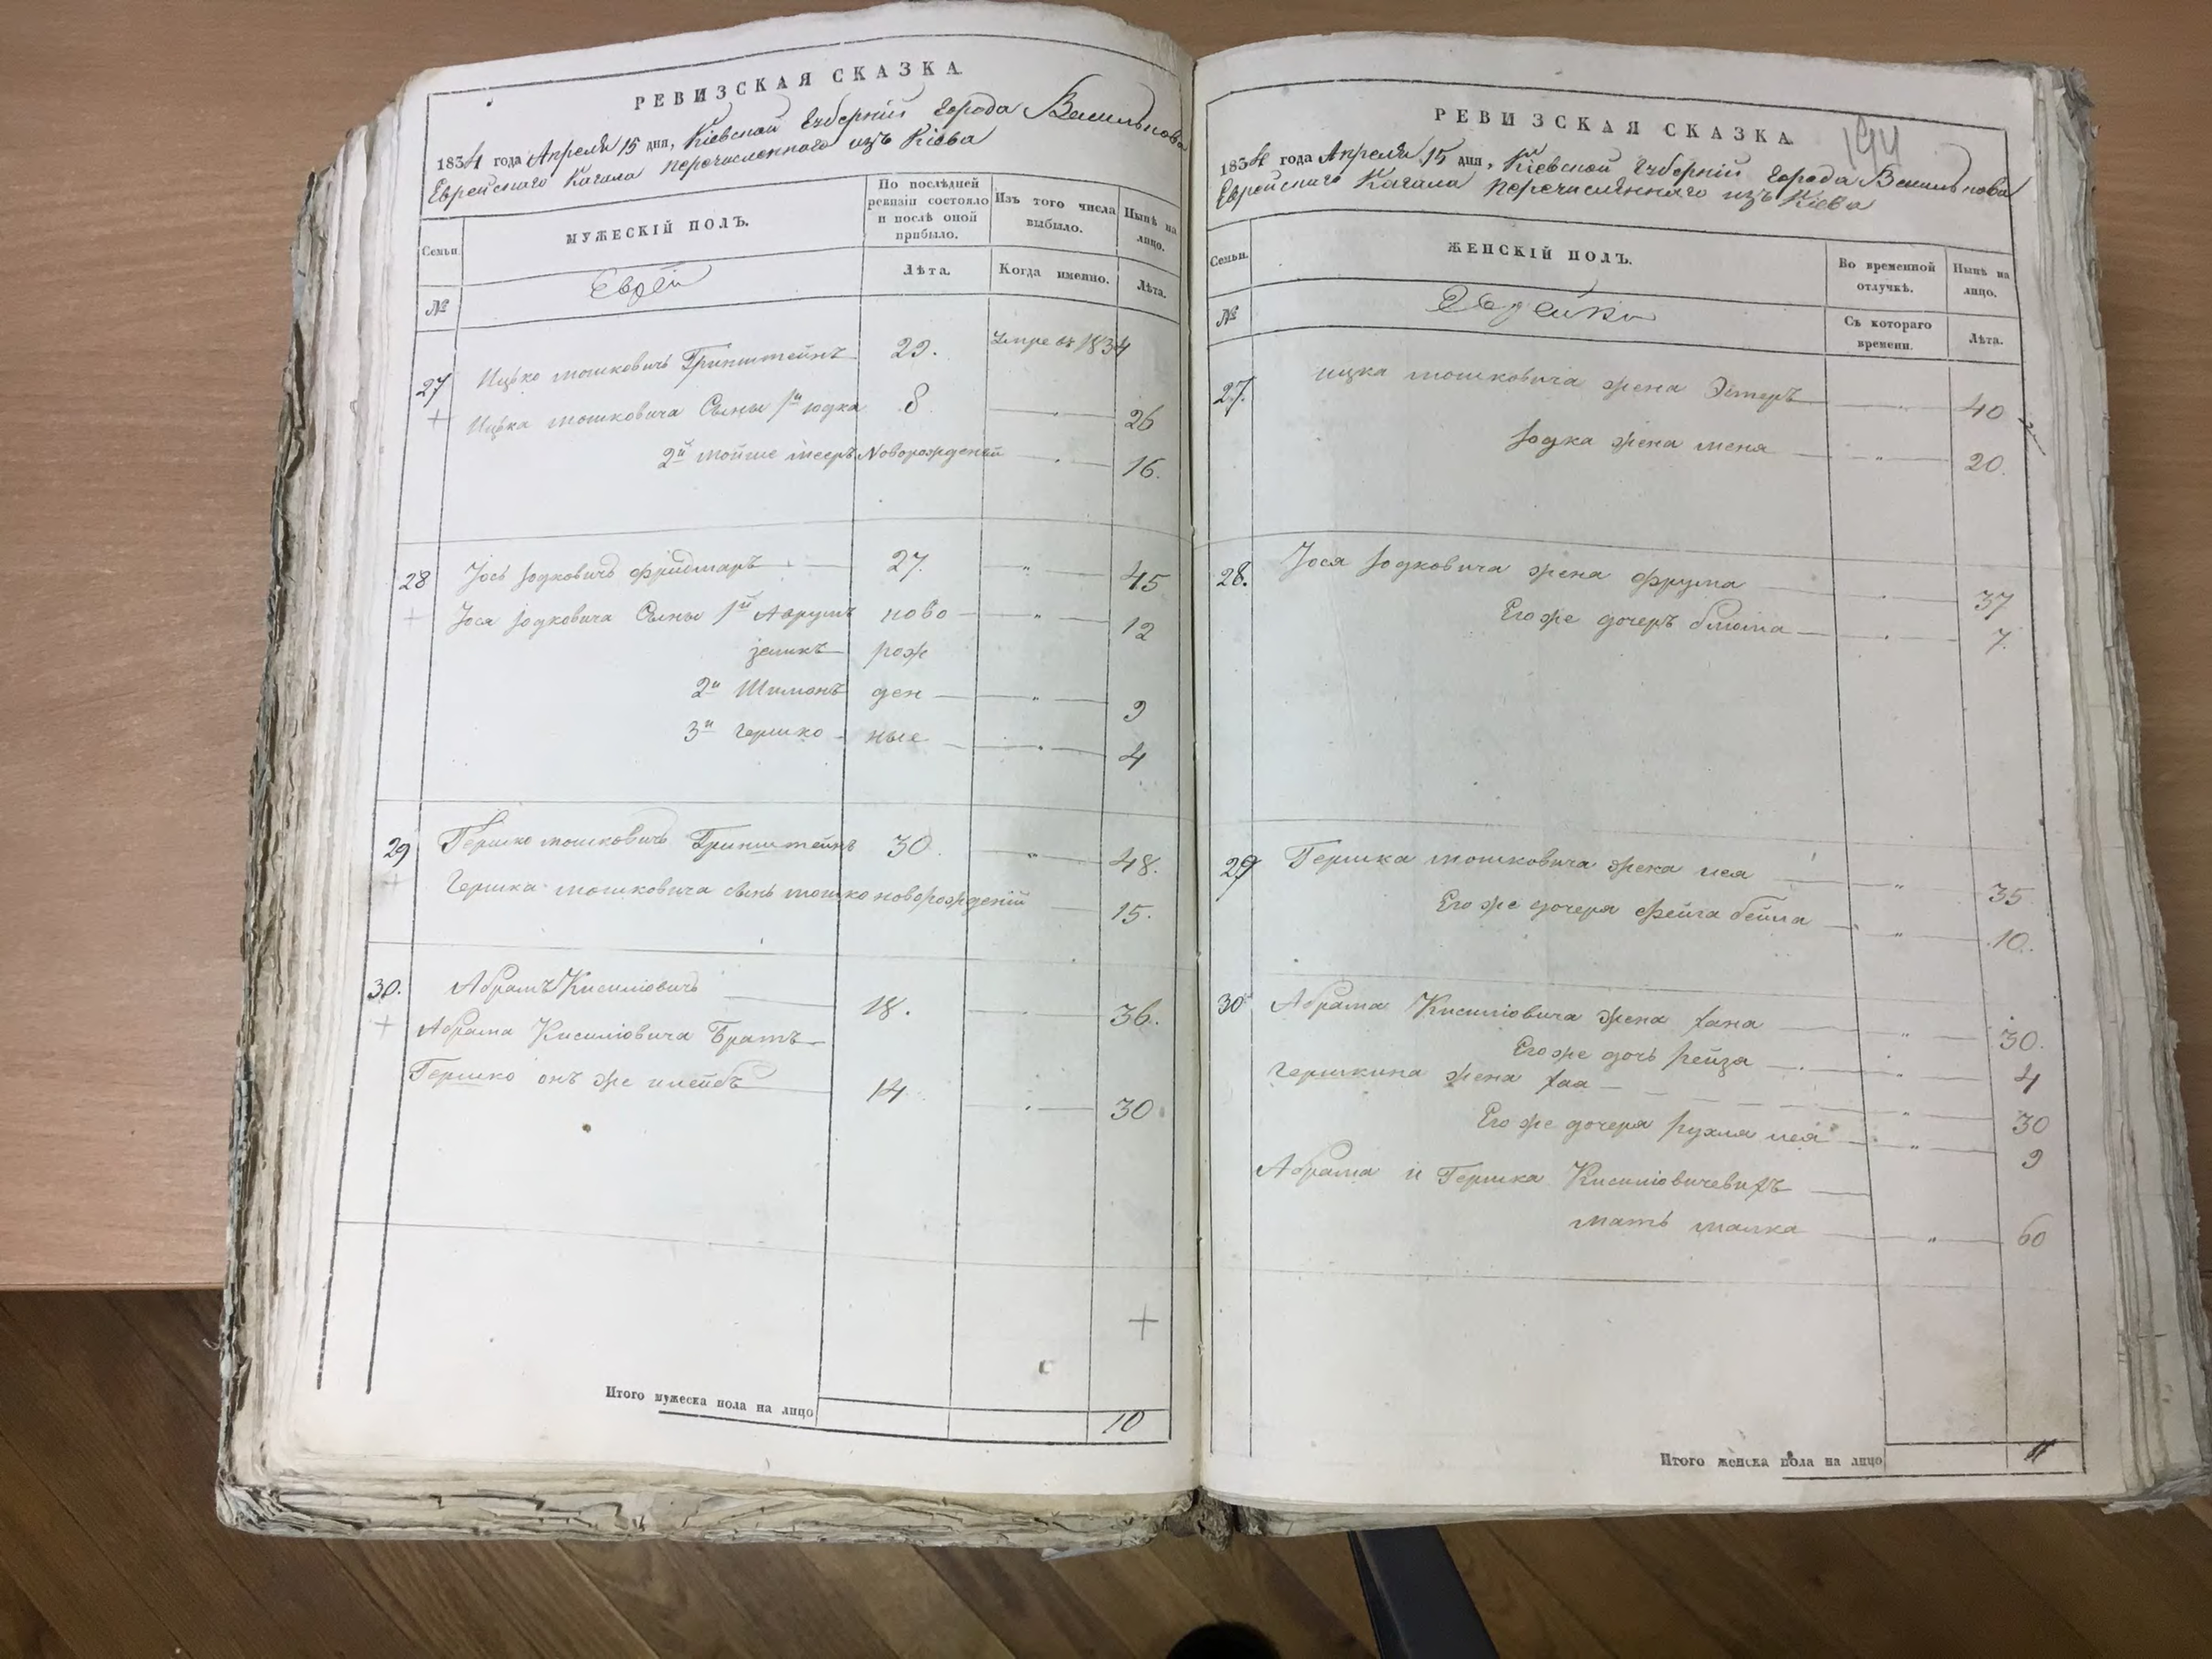 РЕВИЗСКАЯ СКАЗКА.
1834 года Апреля 15 дня, Кіевской Губерніи Города Василькова
Еврейскаго Кагала перечисленного изъ Кіева
Семьи.
МУЖЕСКІЙ ПОЛЪ.
По послѣдней ревизіи состояло и послѣ оной прибыло.
Изъ того числа выбыло.
Нынѣ на лицо.
№
Евреи
Лѣта.
Когда именно.
Лѣта.
27 Ицько Мошковичъ Гринштейнъ 29. Умре въ 1834
Ицька Мошковича Сыны 1й Юдка 8 26
2й Мойше Мееръ Новорожденый 16.
28 Іось Іодковичъ 27. 45
Іося Іодковича Сыны 1й Аврумъ ново 12
зеликъ рож
2й Шимонъ ден 9
3й Гершко ные 4
29 Гершко Мошковичъ Гринштейнъ 30. 48.
Гершка Мошковича сынъ Мошко новорожденій 15.
30. Абрамъ Кисиліовичъ 18. 36.
Абрама Кисиліовича Братъ
Гершко онъ же Лейбъ 14 30
Итого мужеска пола на лицо 10
РЕВИЗСКАЯ СКАЗКА.
194
1834 года Апреля 15 дня, Кіевской Губерніи Города Василькова
Еврейскаго Кагала перечисленнаго изъ Кіева
Семьи.
ЖЕНСКІЙ ПОЛЪ.
Во временной отлучкѣ.
Нынѣ на лицо.
№
Еврейки
Съ котораго времени.
Лѣта.
27. Ицка Мошковича жена Эстеръ 40
Іодка жена Меня 20.
28. Іося Іодковича жена Фрума 37
Его же дочеръ блюма 7.
29 Гершка Мошковича жена Лея 35
Его же дочера Фейга бейла 10.
30 Абрама Кисиліовича жена Хана 30.
Его же дочь Рейза 4
Гершкина жена Хая 30
Его же дочера Рухля Лея 9
Абрама и Гершка Кисиліовичевихъ
мать Малка 60
Итого женска пола на лицо 11